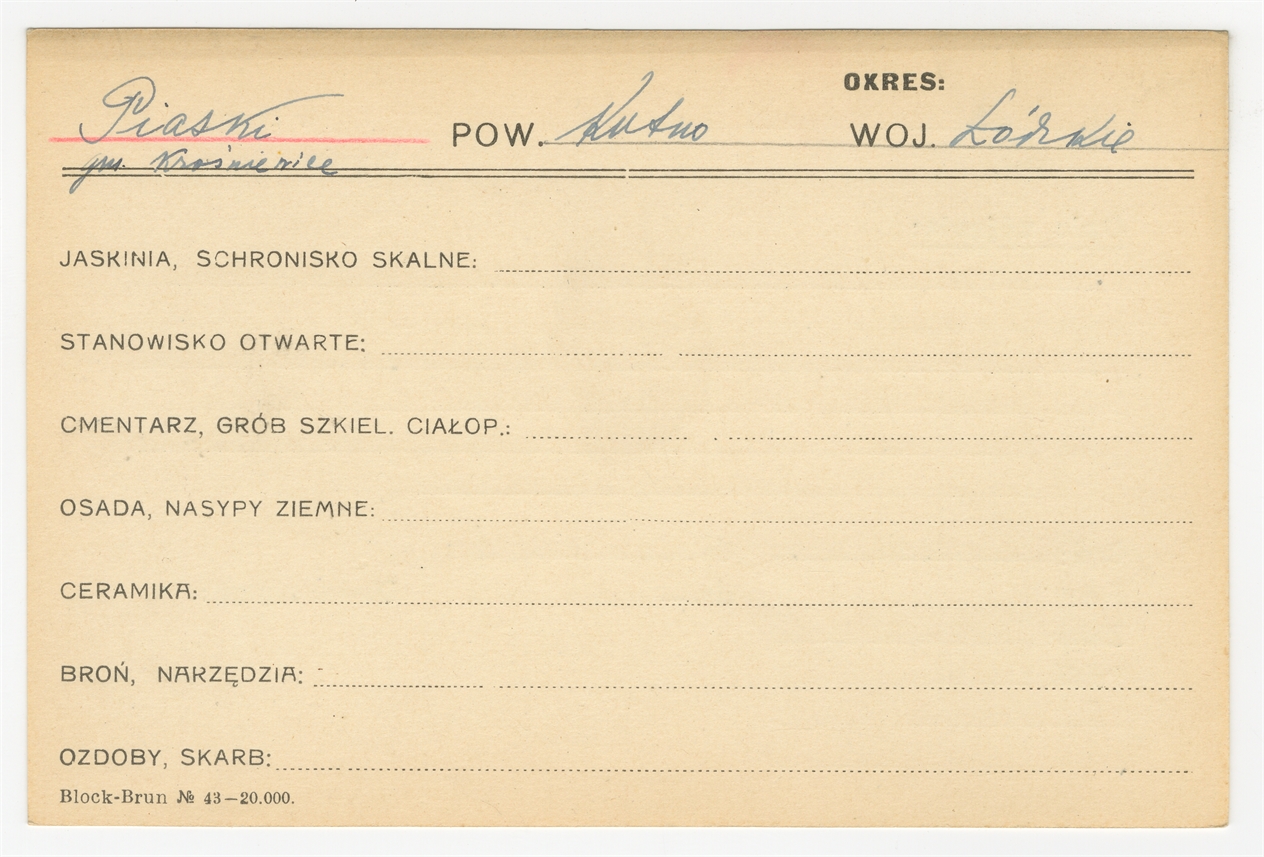 OKRES:
Piaski POW. Kutno WOJ. Łódzkie
gm. Krośniewice
JASKINIA, SCHRONISKO SKALNE:
STANOWISKO OTWARTE:
CMENTARZ, GRÓB SZKIEL. CIAŁOP.:
OSADA, NASYPY ZIEMNE:
CERAMIKA:
BROŃ, NARZĘDZIA:
OZDOBY, SKARB:
Block-Brun № 43—20.000.